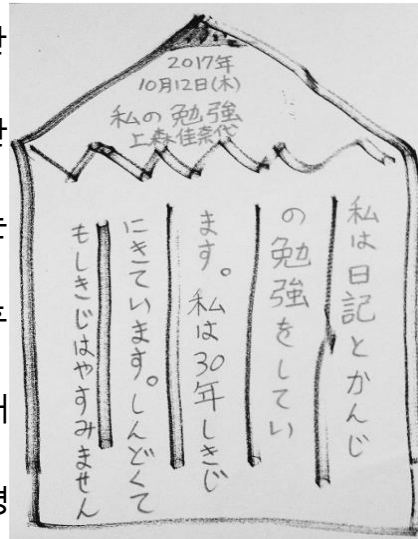 2017年
10月12日(木)
私の勉強
上森佳奈代
私は日記とかんじ
の勉強をしてい
ます。私は30年しきじ
にきています。しんどくて
もしきじはやすみません